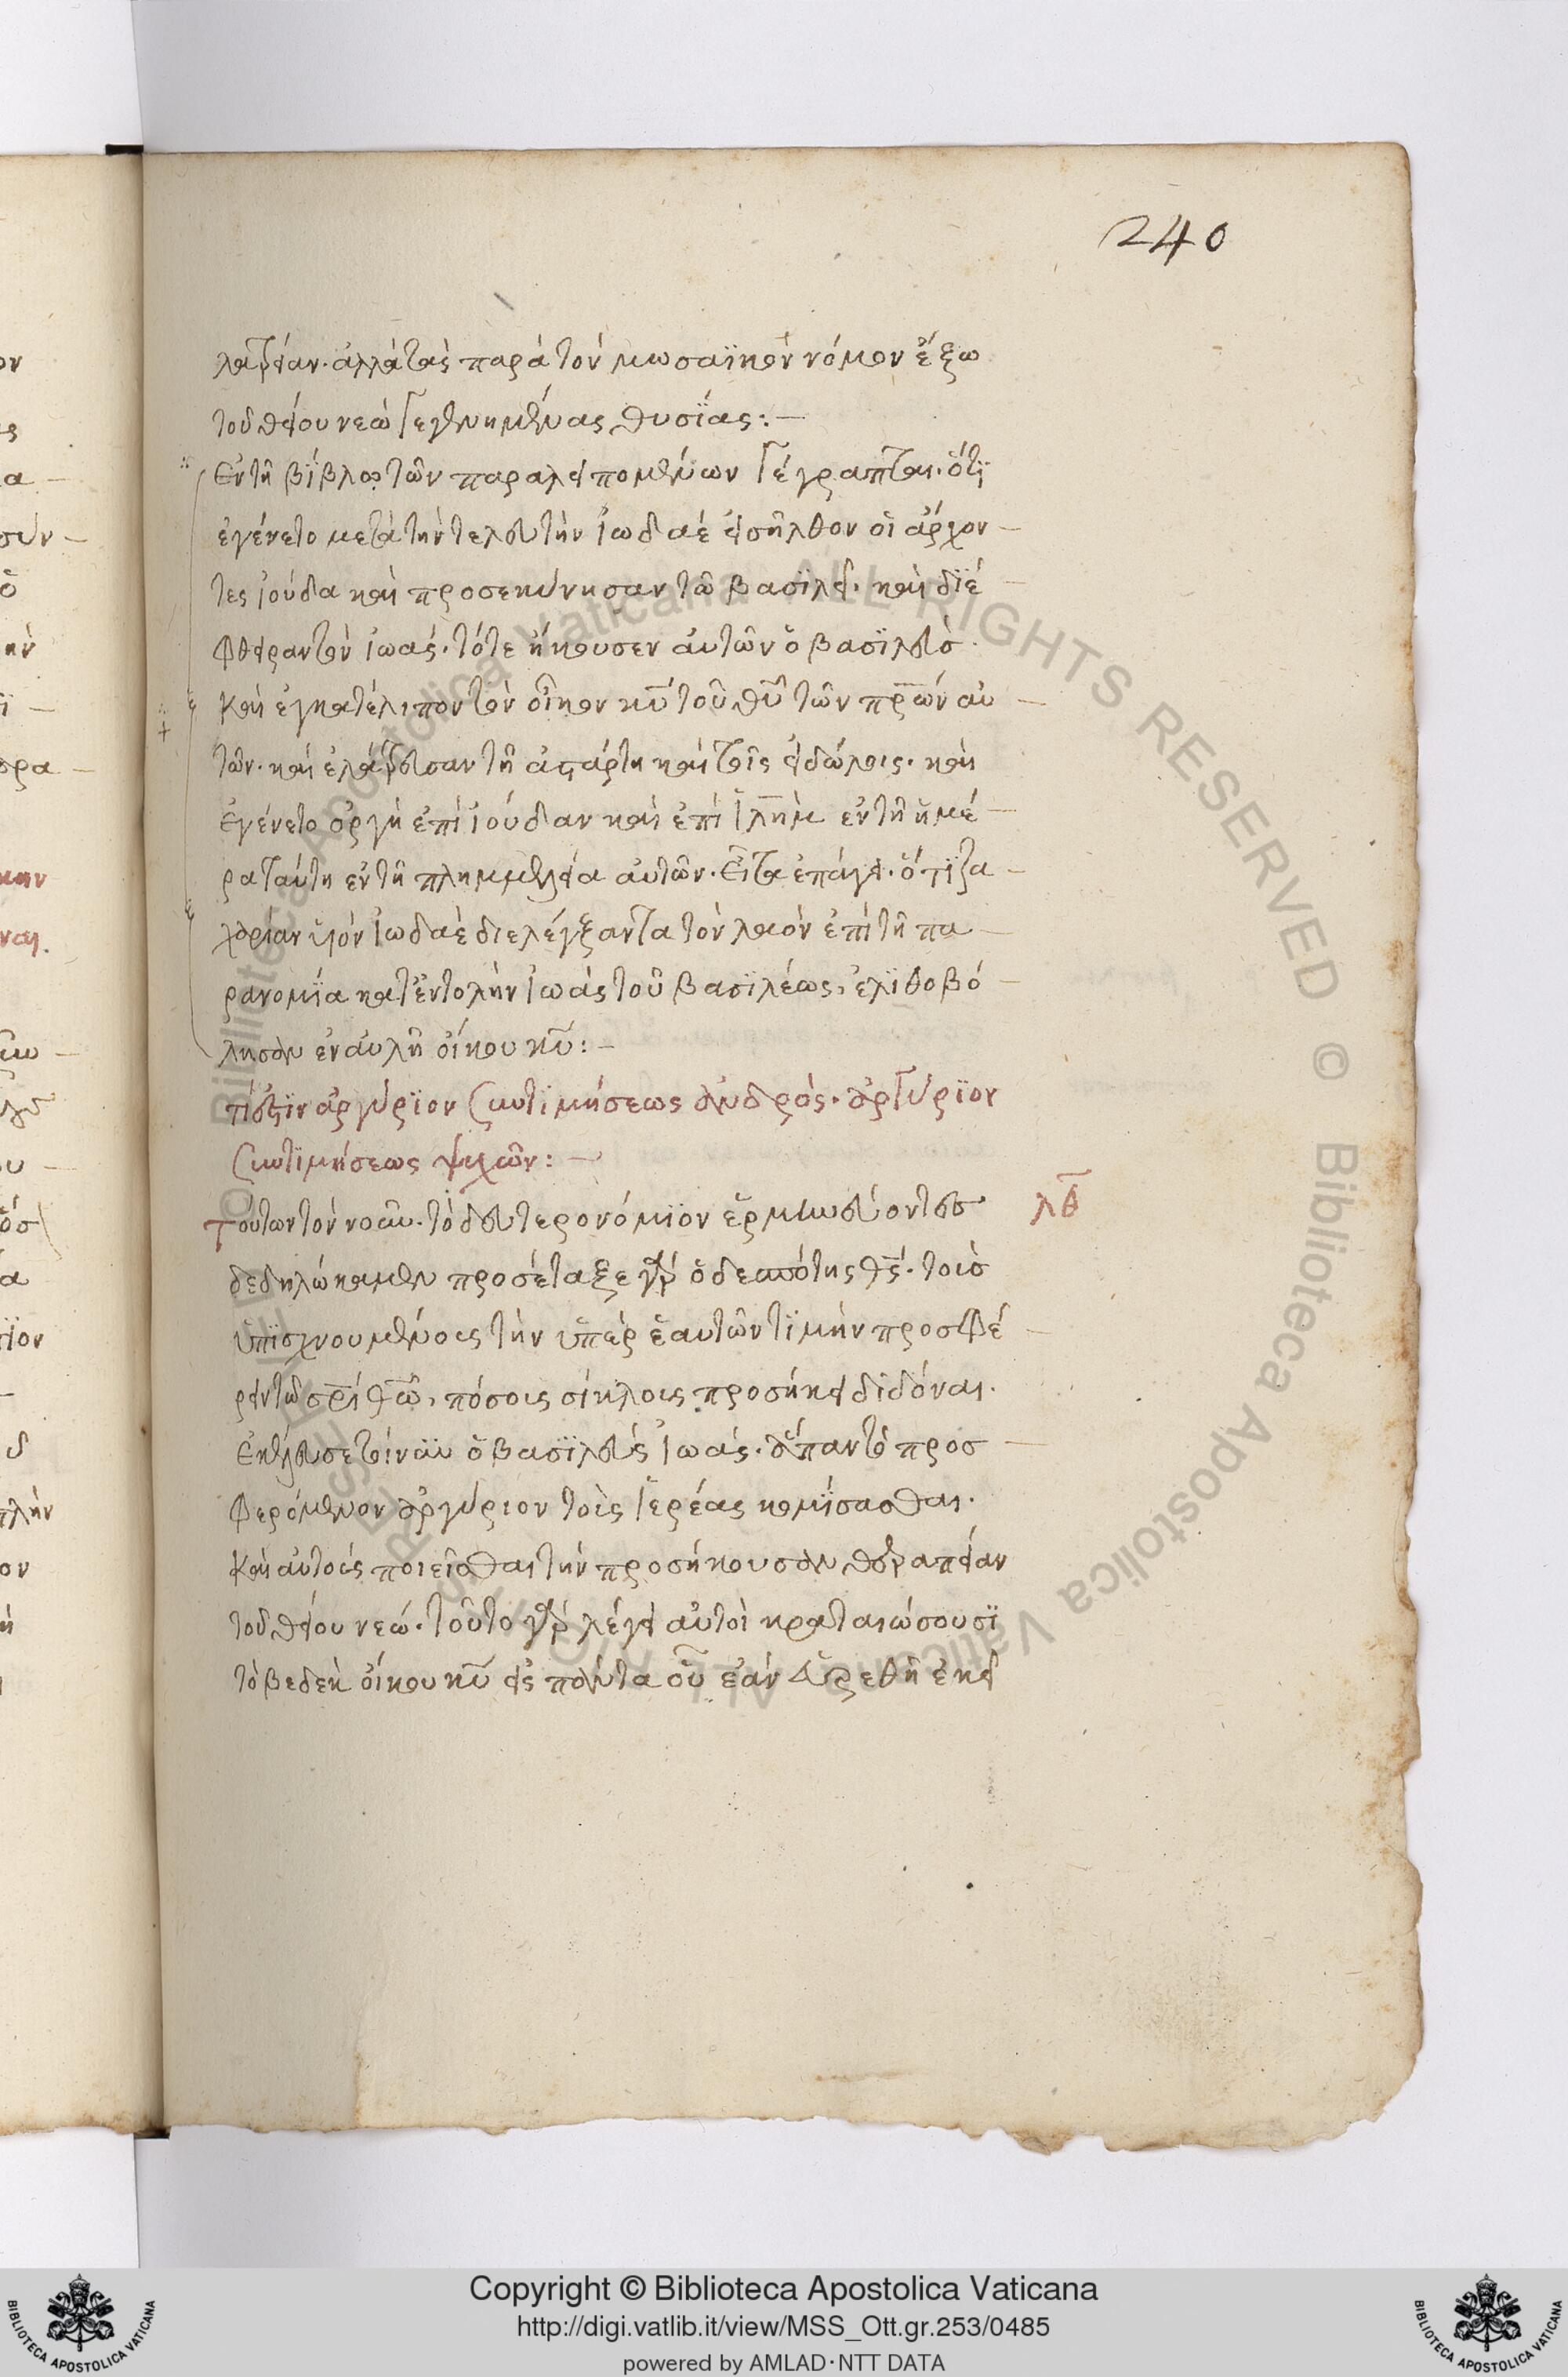 240
λατρείαν. ἀλλὰ τὰς παρὰ τὸν μωσαϊκὸν νόμον ἔξω
τοῦ θείου νεὼ γεγενημένας θυσΐας:—
Ἐν τῇ βΐβλω τῶν παραλειπομένων γέγραπται. ὅτϊ
ἐγένετο μετὰ τὴν τελευτὴν ἰωδαὲ εἰσῆλθον οἱ ἄρχον—
τες ἰούδα καὶ προσεκύνησαν τῶ βασϊλεῖ. καὶ δϊέ—
φθειραν τὸν ἰωάς. τότε ἤκουσεν αὐτῶν ὁ βασϊλεὺσ.
καὶ ἐγκατέλιπον τὸν οἶκον κῡ τοῦ θῡ τῶν πρ̄ων αὐ—
τῶν. καὶ ἐλάτρευσαν τῇ ἀστάρτη καὶ τοῖς εἰδώλοις. καὶ
ἐγένετο ὀργὴ ἐπὶ ἰούδαν καὶ ἐπὶ ἰλημ̄ ἐν τῇ ἡμέ—
ρα ταύτη ἐν τῇ πλημμελεία αὐτῶν. Εἶτα ἐπάγει. ὅτι ζα—
χαρίαν υἱὸν ἰωδαὲ διελέγξαντα τὸν λαὸν ἐπὶ τῇ πα—
ρανομΐα κατ' ἐντολὴν ἰωὰς τοῦ βασϊλέως, ἐλϊθοβό—
λησαν ἐν αὐλῇ οἴκου κῡ:—
τί ἐστϊν ἀργύρϊον συντϊμήσεως ἀνδρός. ἀργύρϊον
συντϊμήσεως ψυχῶν:—
Τούτων τὸν νοῦν. τὸ δευτερονόμϊον ἑρμηνεύοντεσ λθ̄
δεδηλώκαμεν προσέταξε γὰρ ὁ δεσπότης θς̄. τοῖσ
ὑπϊσχνουμένοις τὴν ὑπὲρ ἑαυτῶν τϊμὴν προσφέ—
ρειν τῶ σρ̄ι θω̄, πόσοις σίκλοις προσήκει διδόναι.
Ἐκέλευσε τοίνυν ὁ βασϊλεὺς ἰωάς. ἅπαν τὸ προσ—
φερόμενον ἀργύριον τοὺς ἱερέας κομΐσασθαι.
καὶ αὐτοὺς ποιεῖσθαι τὴν προσήκουσαν θεραπείαν
τοῦ θείου νεώ. τοῦτο γὰρ λέγει αὐτοὶ κραταιώσουσϊ
τὸ βεδὲκ οἴκου κῡ εἰς πάντα οὗ ἐὰν εὑρεθῇ ἐκεῖ
Copyright © Biblioteca Apostolica Vaticana
http://digi.vatlib.it/view/MSS_Ott.gr.253/0485
powered by AMLAD·NTT DATA